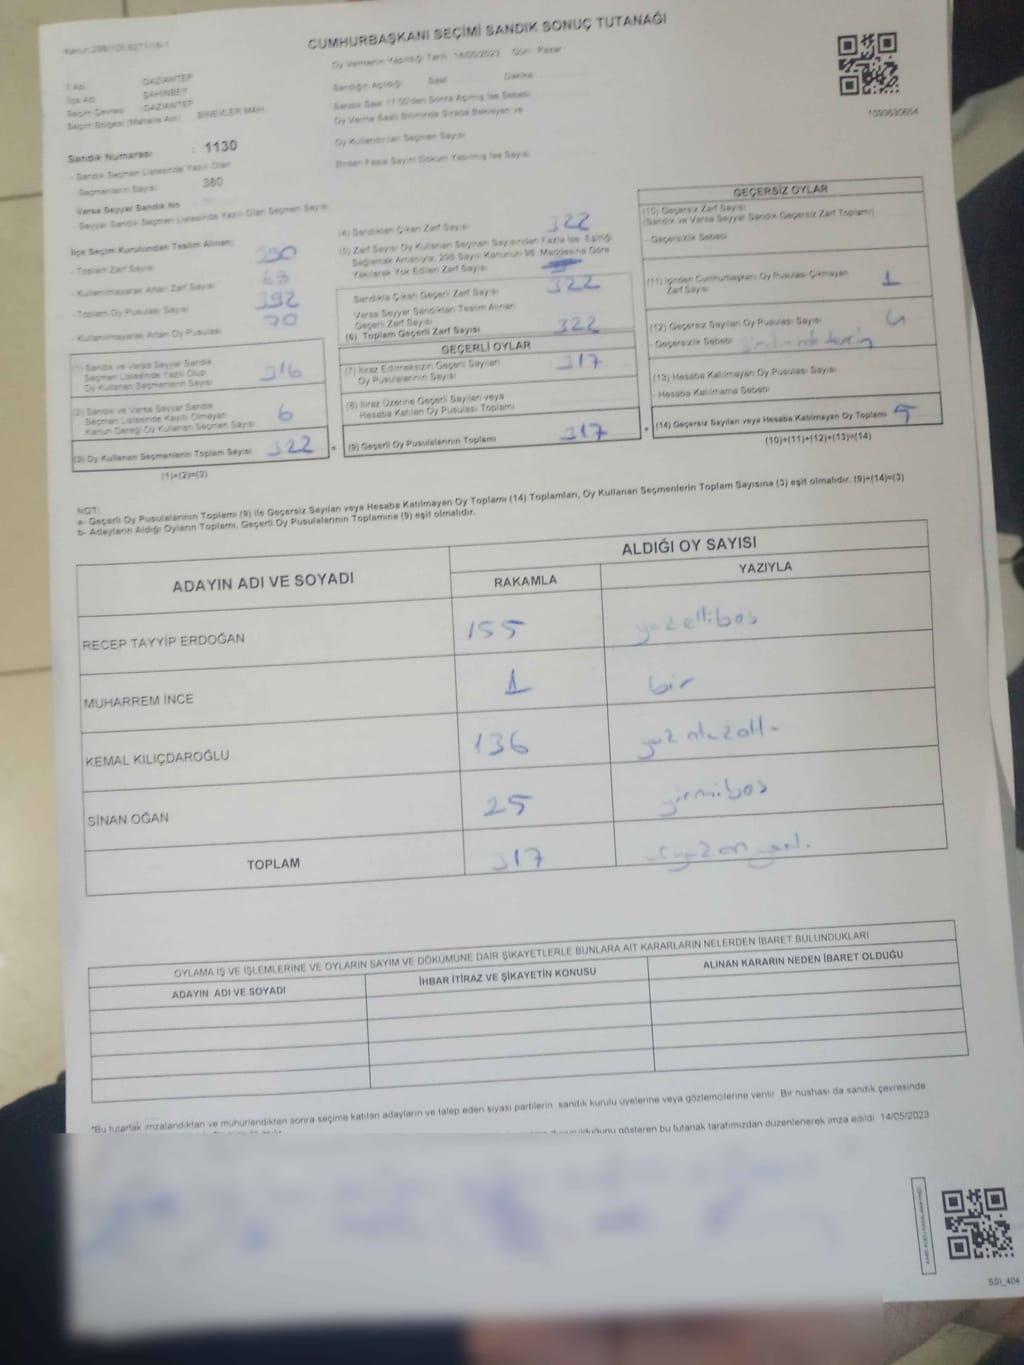 CUMHURBAŞKANI SEÇİMİ SANDIK SONUÇ TUTANAĞI
Oy Vermenin Yapıldığı Tarih 14/05/2023 Gün Pazar
İl Adı GAZİANTEP
İlçe Adı ŞAHİNBEY
Seçim Çevresi GAZİANTEP
Seçim Bölgesi (Mahalle Adı) BİNEVLER MAH.
Sandık Numarası : 1130
- Sandık Seçmen Listesinde Yazılı Olan
Seçmenlerin Sayısı 380
Varsa Seyyar Sandık No
- Seyyar Sandık Seçmen Listesinde Yazılı Olan Seçmen Sayısı
Sandığın Açıldığı Saat Dakika
Sandık Saat 17.00'den Sonra Açılmış İse Sebebi
Oy Verme Saati Bitiminde Sırada Bekleyen ve
Oy Kullandırılan Seçmen Sayısı
Birden Fazla Sayım Döküm Yapılmış İse Sayısı
1093630664
İlçe Seçim Kurulundan Teslim Alınan;
- Toplam Zarf Sayısı 390
- Kullanılmayarak Artan Zarf Sayısı 68
- Toplam Oy Pusulası Sayısı 392
- Kullanılmayarak Artan Oy Pusulası 70
(1) Sandık ve Varsa Seyyar Sandık
Seçmen Listesinde Yazılı Olup
Oy Kullanan Seçmenlerin Sayısı 316
(2) Sandık ve Varsa Seyyar Sandık
Seçmen Listesinde Kayıtlı Olmayan
Kanun Gereği Oy Kullanan Seçmen Sayısı 6
(3) Oy Kullanan Seçmenlerin Toplam Sayısı 322
(1)+(2)=(3)
(4) Sandıktan Çıkan Zarf Sayısı 322
(5) Zarf Sayısı Oy Kullanan Seçmen Sayısından Fazla İse, Eşitliği
Sağlamak Amacıyla, 298 Sayılı Kanunun 98. Maddesine Göre
Yakılarak Yok Edilen Zarf Sayısı
Sandıkta Çıkan Geçerli Zarf Sayısı 322
Varsa Seyyar Sandıktan Teslim Alınan
Geçerli Zarf Sayısı
(6) Toplam Geçerli Zarf Sayısı 322
GEÇERLİ OYLAR
(7) İtiraz Edilmeksizin Geçerli Sayılan
Oy Pusulalarının Sayısı 317
(8) İtiraz Üzerine Geçerli Sayılan veya
Hesaba Katılan Oy Pusulası Toplamı
= (9) Geçerli Oy Pusulalarının Toplamı 317 +
GEÇERSİZ OYLAR
(10) Geçersiz Zarf Sayısı
(Sandık ve Varsa Seyyar Sandık Geçersiz Zarf Toplamı)
- Geçersizlik Sebebi
(11) İçinden Cumhurbaşkanı Oy Pusulası Çıkmayan
Zarf Sayısı 1
(12) Geçersiz Sayılan Oy Pusulası Sayısı 4
- Geçersizlik Sebebi
(13) Hesaba Katılmayan Oy Pusulası Sayısı
- Hesaba Katılmama Sebebi
(14) Geçersiz Sayılan veya Hesaba Katılmayan Oy Toplamı 5
(10)+(11)+(12)+(13)=(14)
NOT:
a- Geçerli Oy Pusulalarının Toplamı (9) ile Geçersiz Sayılan veya Hesaba Katılmayan Oy Toplamı (14) Toplamları, Oy Kullanan Seçmenlerin Toplam Sayısına (3) eşit olmalıdır. (9)+(14)=(3)
b- Adayların Aldığı Oyların Toplamı, Geçerli Oy Pusulalarının Toplamına (9) eşit olmalıdır.
ADAYIN ADI VE SOYADI
ALDIĞI OY SAYISI
RAKAMLA YAZIYLA
RECEP TAYYİP ERDOĞAN 155 yüzellibeş
MUHARREM İNCE 1 bir
KEMAL KILIÇDAROĞLU 136 yüzotuzaltı
SİNAN OĞAN 25 yirmibeş
TOPLAM 317 üçyüzonyedi
OYLAMA İŞ VE İŞLEMLERİNE VE OYLARIN SAYIM VE DÖKÜMÜNE DAİR ŞİKAYETLERLE BUNLARA AİT KARARLARIN NELERDEN İBARET BULUNDUKLARI
ADAYIN ADI VE SOYADI
İHBAR İTİRAZ VE ŞİKAYETİN KONUSU
ALINAN KARARIN NEDEN İBARET OLDUĞU
*Bu tutanak imzalandıktan ve mühürlendikten sonra seçime katılan adayların ve talep eden siyasi partilerin sandık kurulu üyelerine veya gözlemcilerine verilir. Bir nüshası da sandık çevresinde
gösteren bu tutanak tarafımızdan düzenlenerek imza edildi. 14/05/2023
SSI_404